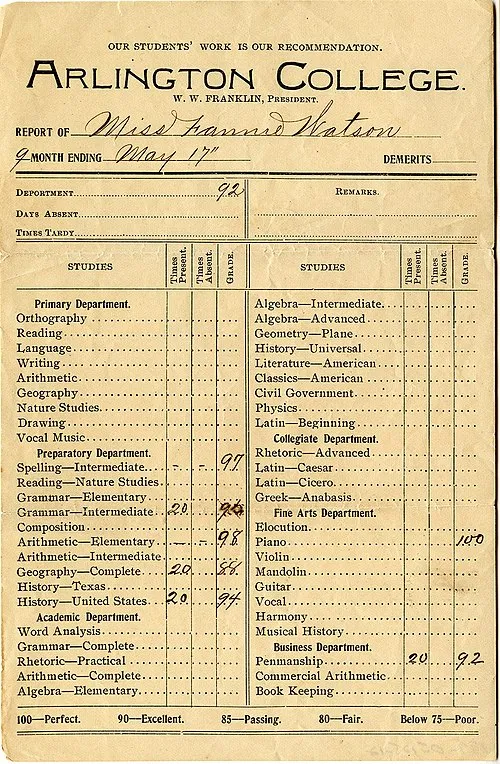 OUR STUDENTS' WORK IS OUR RECOMMENDATION.
ARLINGTON COLLEGE.
W. W. FRANKLIN, PRESIDENT.
REPORT OF Miss Fannie Watson
9 MONTH ENDING May 17" DEMERITS
DEPORTMENT 92
DAYS ABSENT
TIMES TARDY
REMARKS.
STUDIES Times Present. Times Absent. GRADE.
Primary Department.
Orthography
Reading
Language
Writing
Arithmetic
Geography
Nature Studies
Drawing
Vocal Music
Preparatory Department.
Spelling—Intermediate - - 97
Reading—Nature Studies
Grammar—Elementary
Grammar—Intermediate 20
Composition
Arithmetic—Elementary — - 98
Arithmetic—Intermediate
Geography—Complete 20 88
History—Texas
History—United States 20 94
Academic Department.
Word Analysis
Grammar—Complete
Rhetoric—Practical
Arithmetic—Complete
Algebra—Elementary
STUDIES Times Present. Times Absent. GRADE.
Algebra—Intermediate
Algebra—Advanced
Geometry—Plane
History—Universal
Literature—American
Classics—American
Civil Government
Physics
Latin—Beginning
Collegiate Department.
Rhetoric—Advanced
Latin—Caesar
Latin—Cicero
Greek—Anabasis
Fine Arts Department.
Elocution
Piano 100
Violin
Mandolin
Guitar
Vocal
Harmony
Musical History
Business Department.
Penmanship 20 92
Commercial Arithmetic
Book Keeping
100—Perfect. 90—Excellent. 85—Passing. 80—Fair. Below 75—Poor.